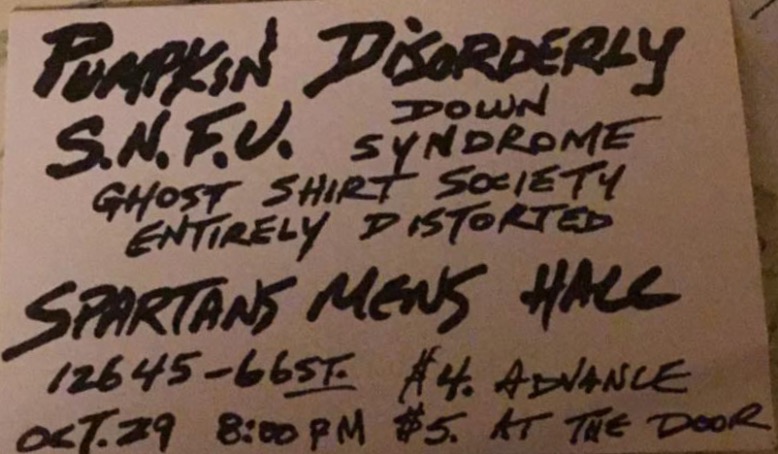 PUMPKIN DISORDERLY
S.N.F.U. DOWN SYNDROME
GHOST SHIRT SOCIETY
ENTIRELY DISTORTED
SPARTANS MENS HALL
12645-66 ST. $4. ADVANCE
OCT. 29 8:00 PM $5. AT THE DOOR